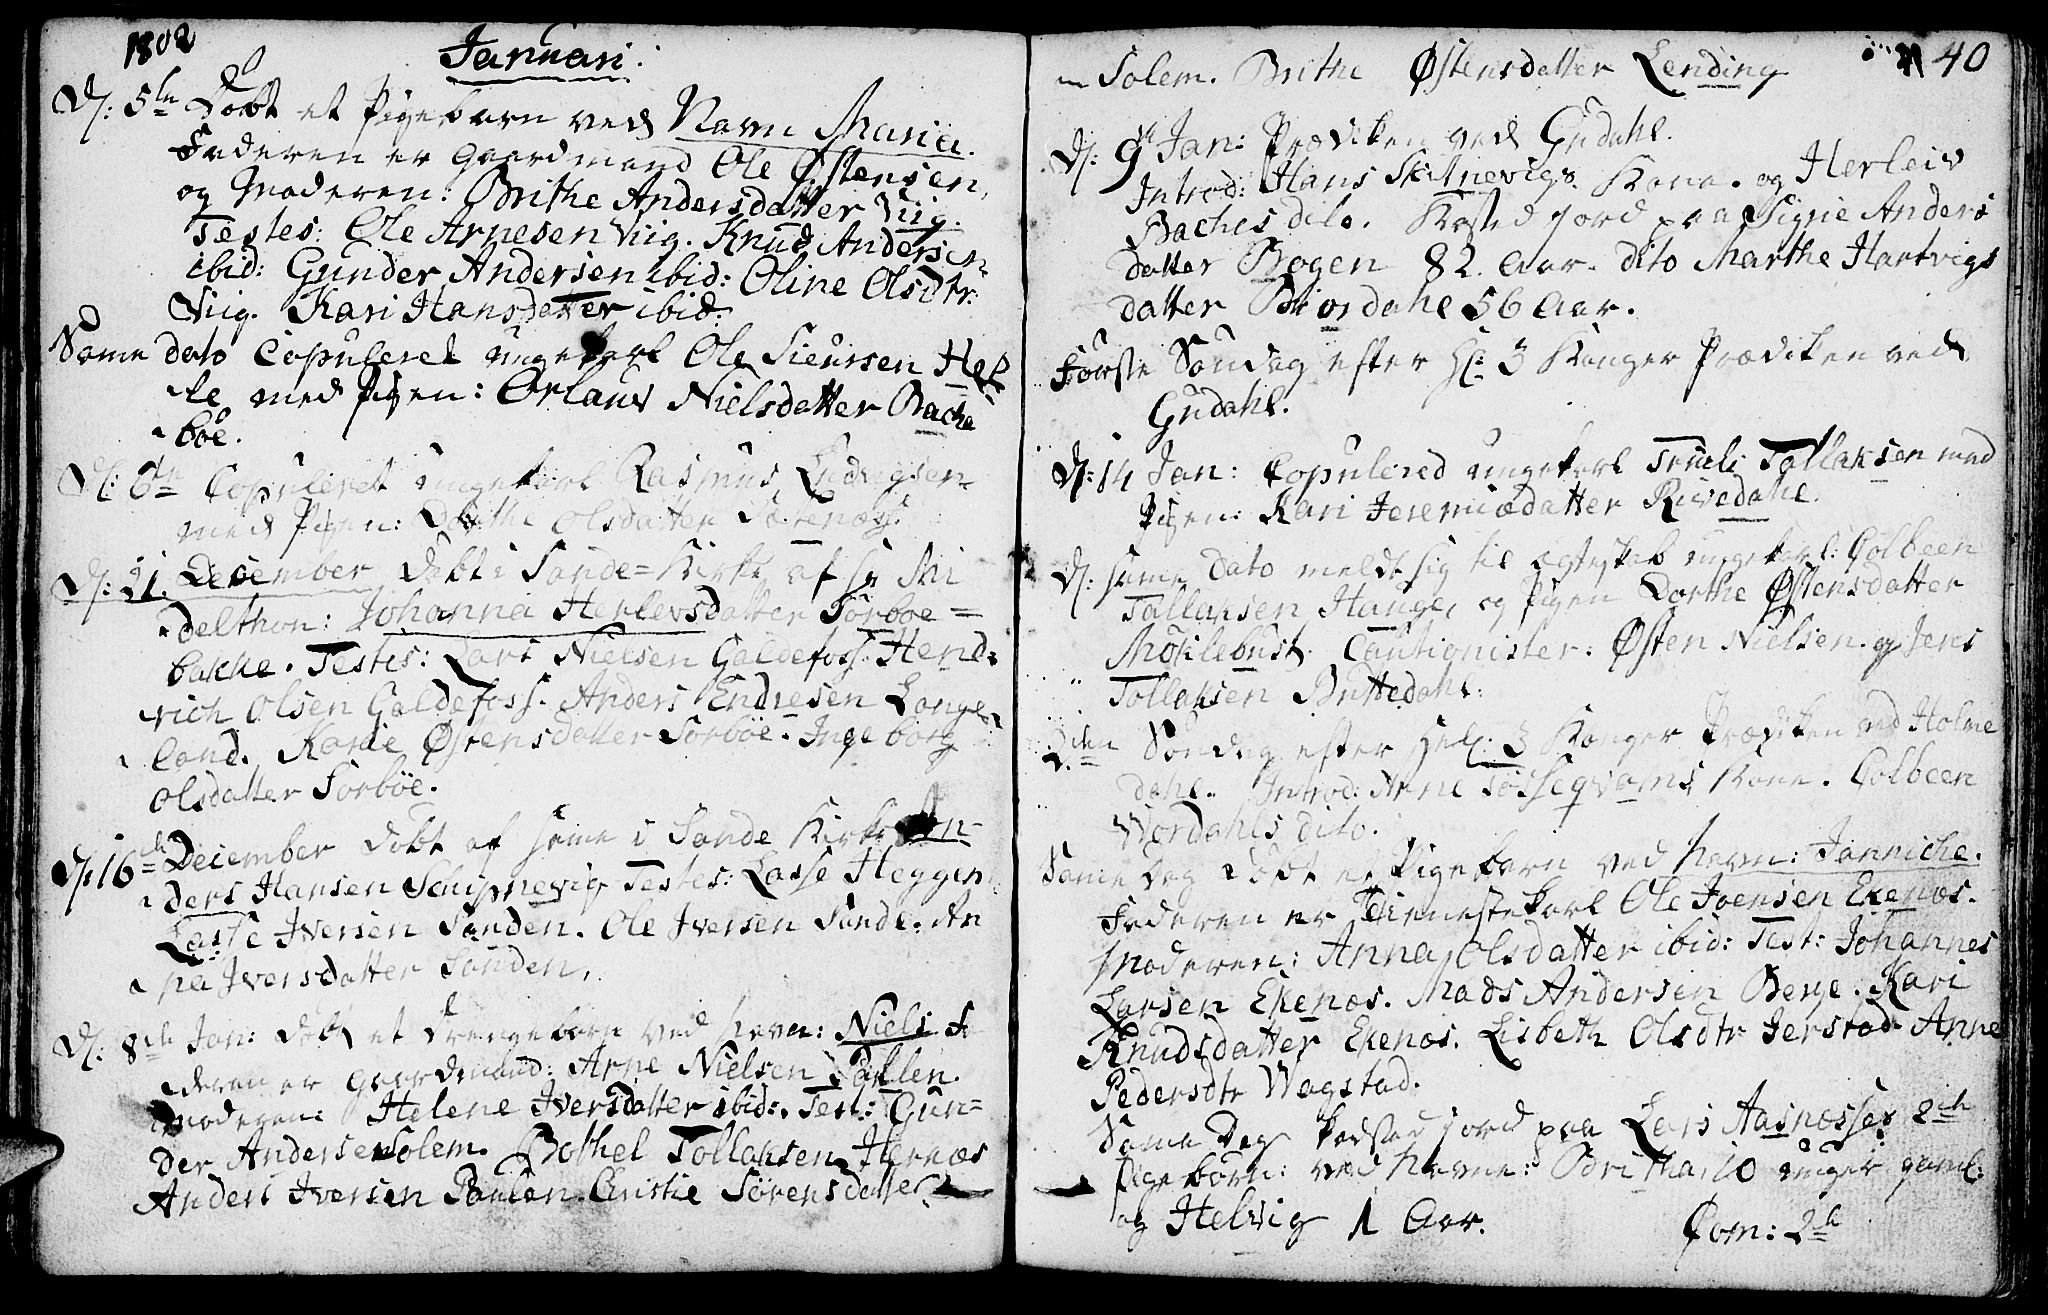 1802
Januari.
D: 5te Döbt et Pigebarn ved Navn Maria.
Faderen er Gaardmand Ole Østensen,
og Moderen: Brithe Andersdatter Viig.
Testes: Ole Arnesen Viig. Knud Andersen
ibid: Gunder Andersen ibid: Oline Olsdtr:
Viig. Kari Hansdatter ibid:
Same dato Copuleret ungekarl Ole Sieursen Hef
med Pigen: Orlaug Nielsdatter Bache
böe.
D: 6te Copuleret ungekarl Rasmus Ludvigsen
med Pigen: Dorthe Olsdatter Sætenæs.
D: 21. December Döbt i Sande=Kirke af hr Mi
delthon: Johanna Herlevsdatter Sörboe=
bakke. Testes: Lars Nielsen Galdefoss. Hend:
rich Olsen Galdefoss. Anders Endresen Lange
land. Karie Østensdatter Sörböe. Ingeborg
Olsdatter Sörböe.
D: 16de December Döbt af same i Sande Kirke An-
ders Hansen Schipnevig Testes: Lasse Heggen
Lasse Iversen Sanden. Ole Iversen Sande. An
na Iversdatter Sanden.
D: 8de Jan: döbt et Drengebarn ved Navn: Niels Fa
deren er gaardmand: Arne Nielsen Pahlen.
Moderen: Helene Iversdatter ibid:. Test: Gun=
der Andersen Solem. Bothel Tollaksen Hernæs
Anders Iversen Paulen. Christie Sörensdatter
Solem. Brithe Østensdatter Lending
40
D: 9de Jan: Prædiken ved Gudahl.
Introd: Hans Skipnevigs Kone. og Herleiv
Baches dito. Kasted jord paa Signe Anders
datter Bogen 82. Aar. dito Marthe Hartvigs
datter Biordahl 56 Aar.
Förste Söndag efter H: 3 Konger Prædiken ved
Gudahl.
D: 14 Jan: Copulered ungekarl Truels Tollaksen med
Pigen: Kari Jeremiædatter Rivedahl.
D: same Dato meldt sig til Egteskab ungekarl: Colbeen
Tallaksen Hauge, og Pigen Dorthe Østensdatter
Møklebust. Cautionister: Østen Nielsen. og Jens
Tollaksen Buttedahl.
2den Söndag efter Hel: 3 Konger Prædiken ved Holme
dahl. Introd: Arne Tössegvams Kone. Colbeen
Wordahls dito.
Same Dag Döbt et Pigebarn ved Navn: Janniche.
Faderen er Tienestekarl Ole Joensen Ekenæs.
Moderen: Anna Olsdatter ibid: Test: Johannes
Larsen Ekenæs. Mads Andersen Berge. Kari
Knudsdatter Ekenæs. Lisbeth Olsdtr Jerstad. Anne
Pedersdtr Wagstad.
Same Dag kasted jord paa Lars Aasnæsses 2de
Pigebörn: ved Navne: Britha, 10 uger gaml:
og Helvig 1 Aar.
Com: 2de